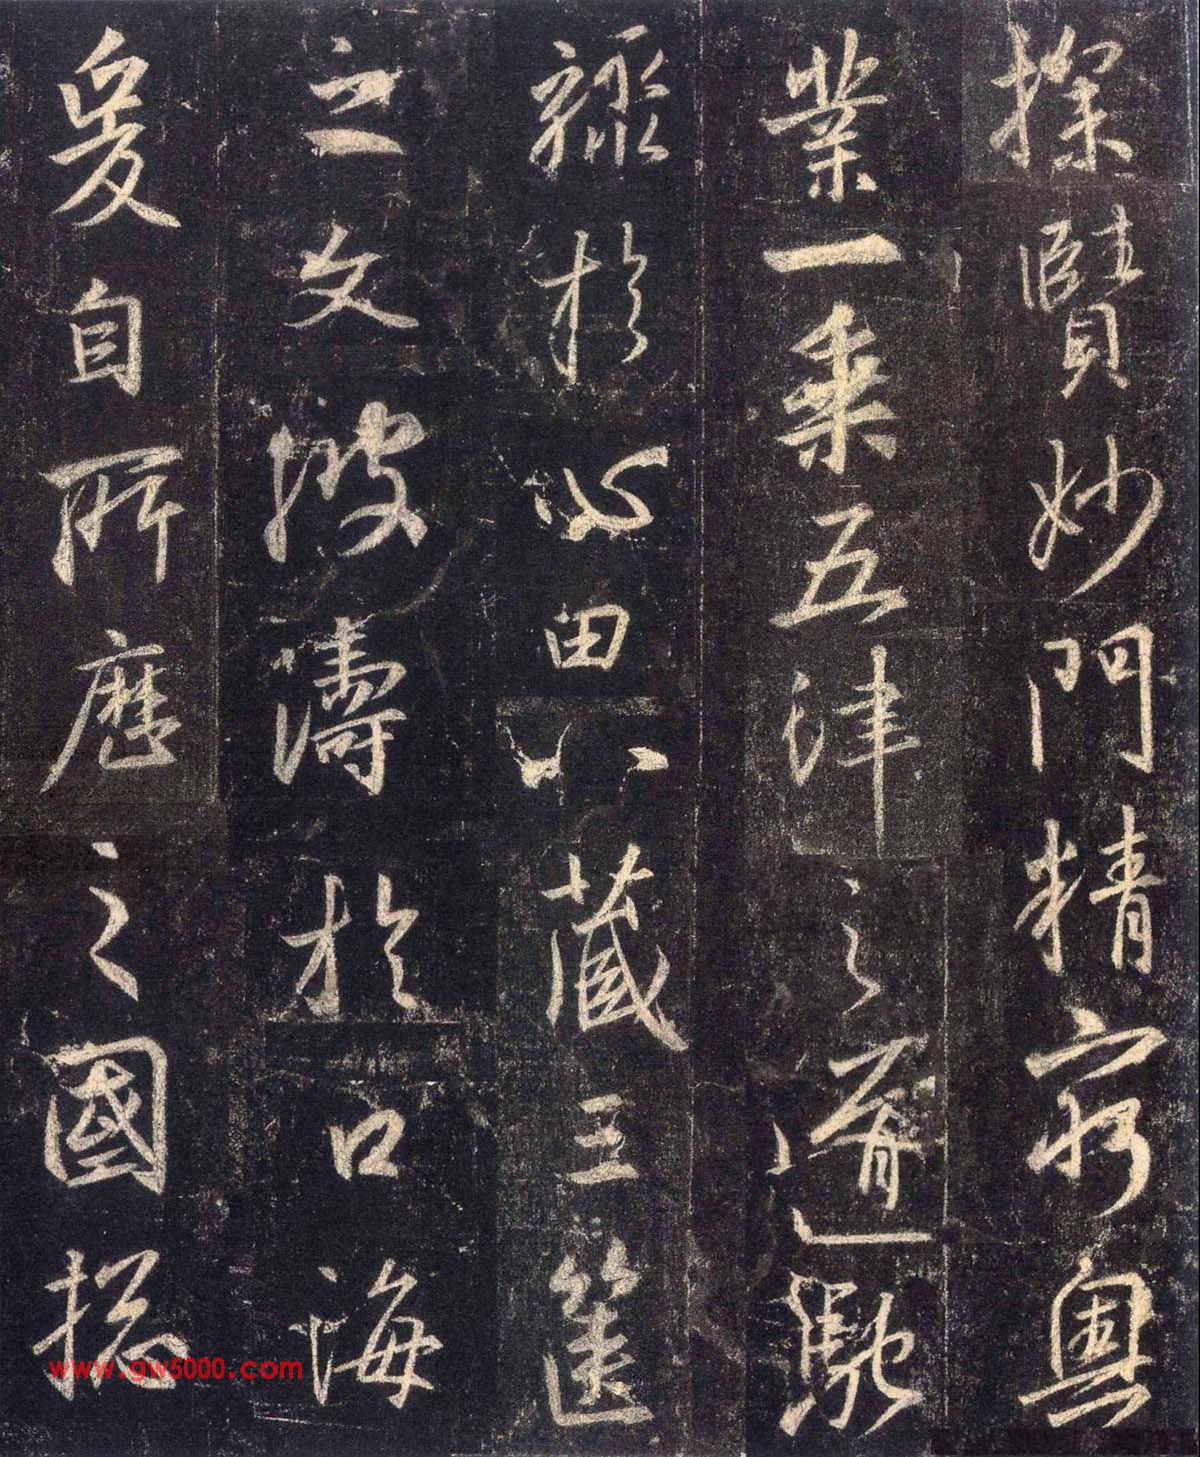 探賾妙門精窮奧
業一乘五律之道馳
驟於心田八藏三篋
之文波濤於口海
爰自所歷之國揔
www.gw5000.com